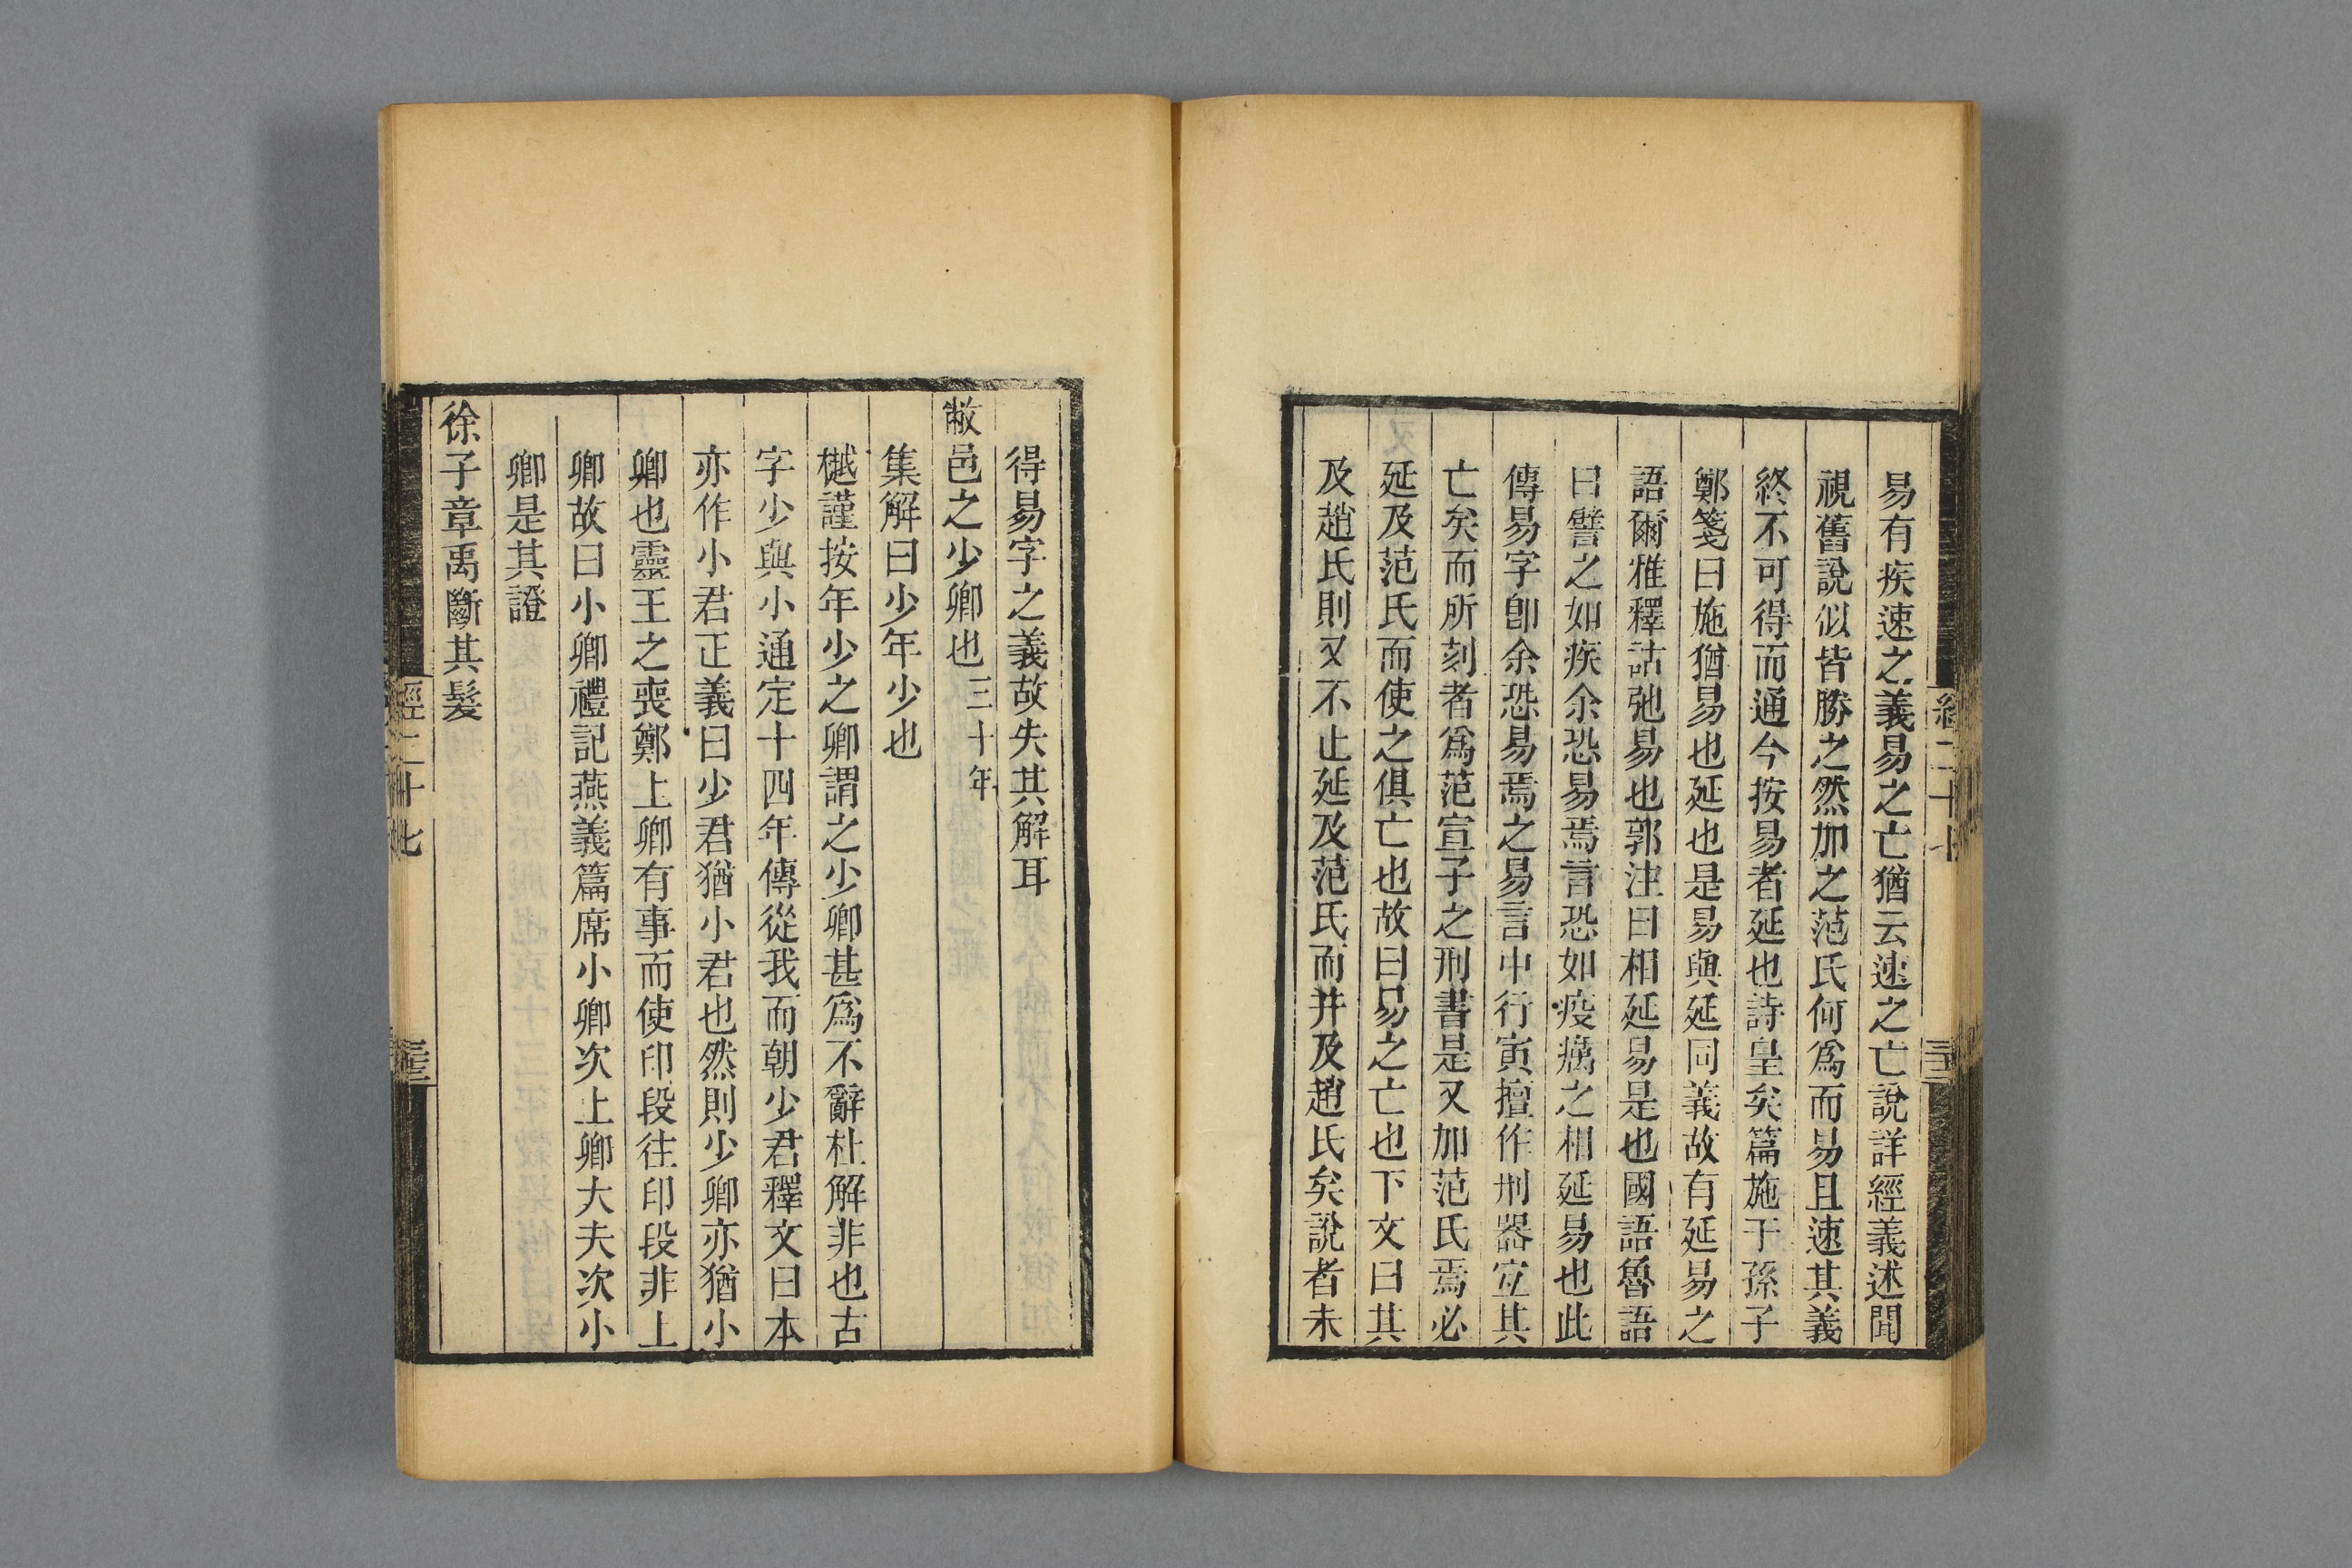 易有疾速之義易之亡猶云速之亡說詳經義述聞
視舊說似皆勝之然加之范氏何爲而易且速其義
終不可得而通今按易者延也詩皇矣篇施于孫子
鄭箋曰施猶易也延也是易與延同義故有延易之
語爾雅釋詁弛易也郭注曰相延易是也國語魯語
曰譬之如疾余恐易焉言恐如疫癘之相延易也此
傳易字卽余恐易焉之易言中行寅擅作刑器宐其
亡矣而所刻者爲范宣子之刑書是又加范氏焉必
延及范氏而使之俱亡也故曰易之亡也下文曰其
及趙氏則又不止延及范氏而并及趙氏矣說者未
得易字之義故失其解耳
敝邑之少卿也三十年
集解曰少年少也
樾謹按年少之卿謂之少卿甚爲不辭杜解非也古
字少與小通定十四年傳從我而朝少君釋文曰本
亦作小君正義曰少君猶小君也然則少卿亦猶小
卿也靈王之喪鄭上卿有事而使印段往印段非上
卿故曰小卿禮記燕義篇席小卿次上卿大夫次小
卿是其證
徐子章禹斷其髮
經二十七